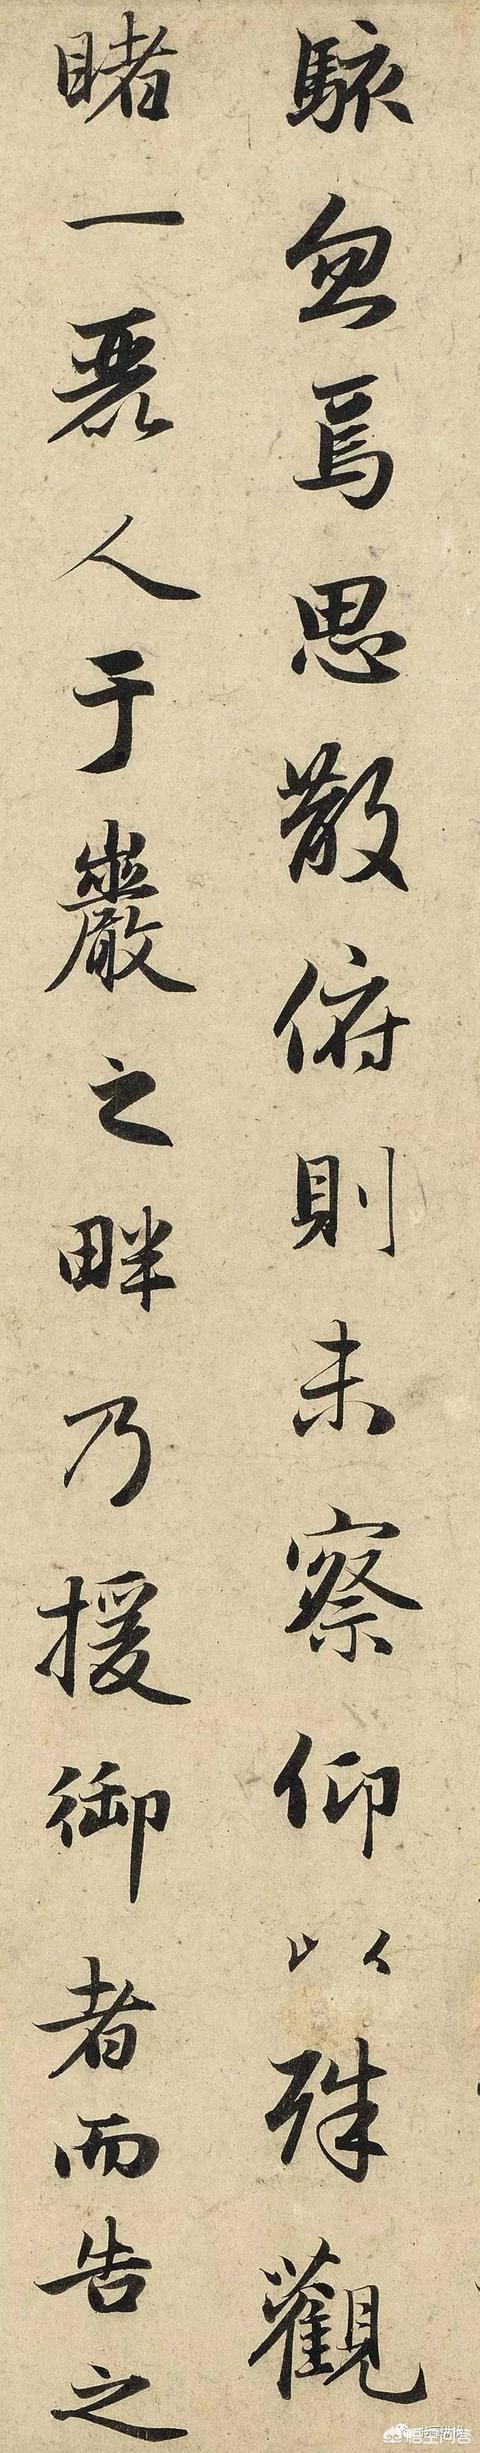 駭忽焉思散俯則未察仰以殊觀
睹一麗人于巖之畔乃援御者而告之
悟空问答